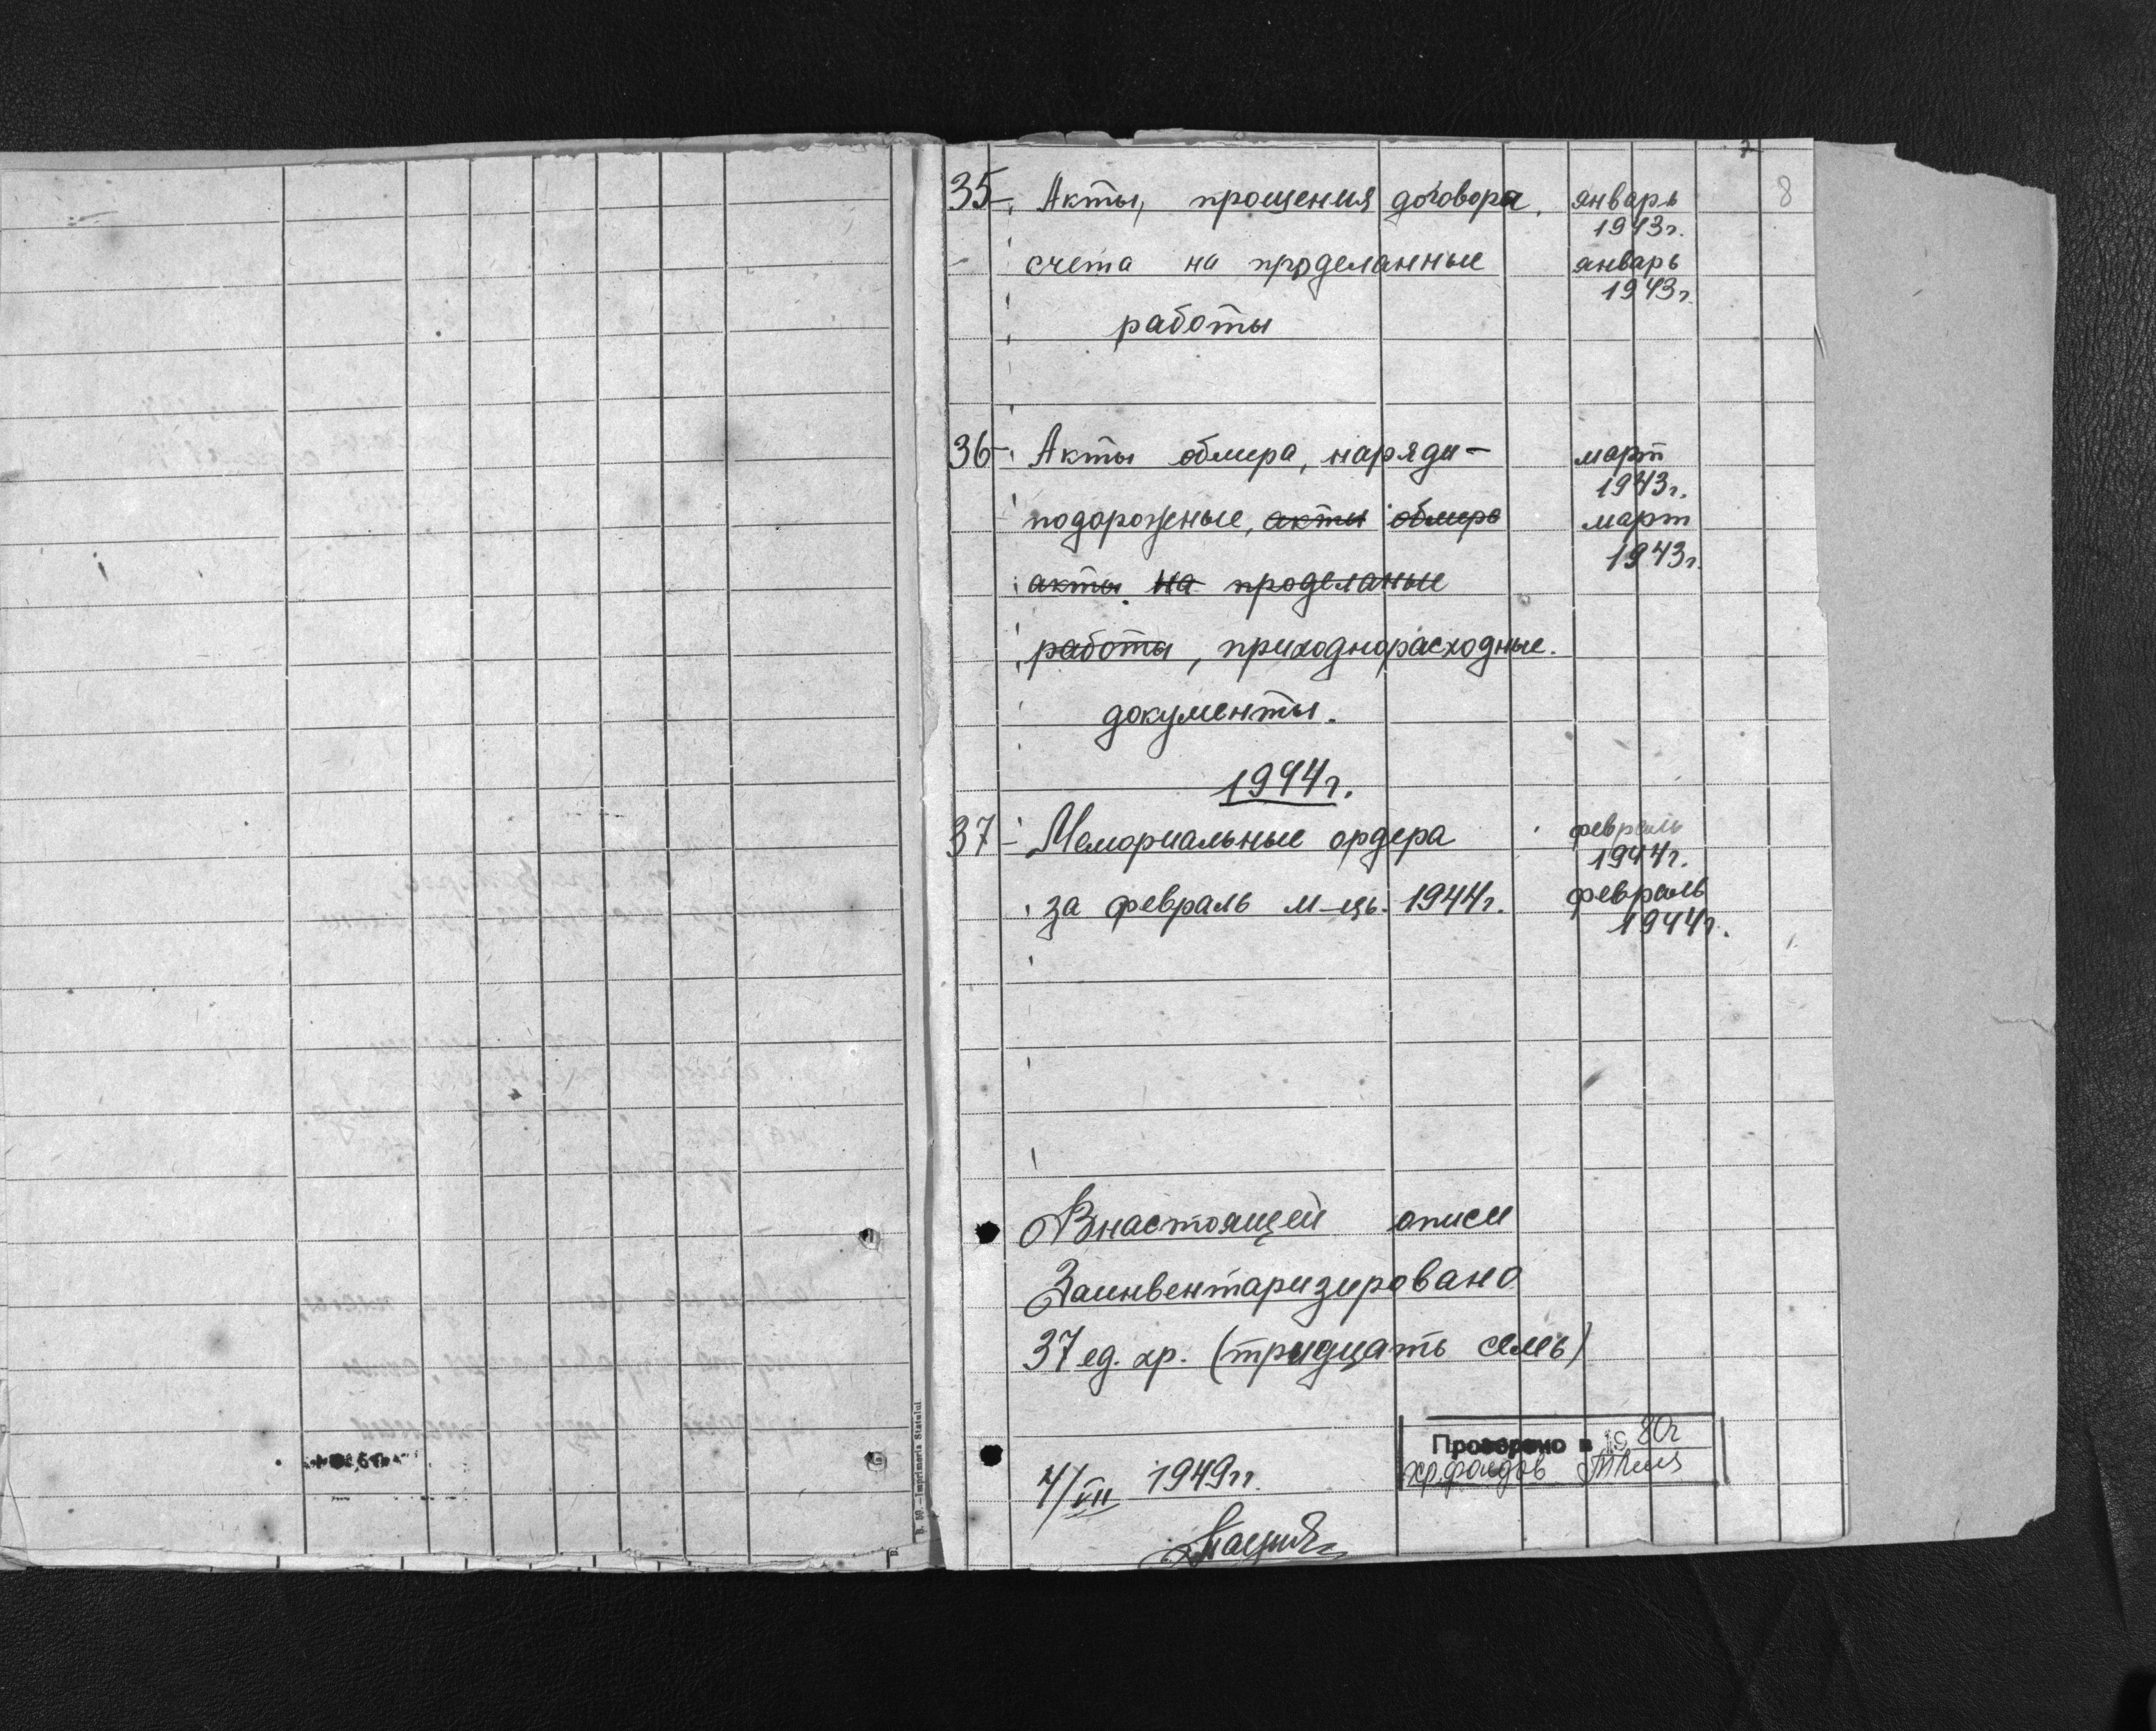 7
8
35 Акты, прошения договора, январь
1943г.
счета на проделанные январь
1943г.
работы
36 Акты обмера, наряди- март
1943г.
подорожные, акты обмера март
1943г.
акты на проделаные
работы, приходнорасходные.
документы.
1944г.
37 Мемориальные ордера февраль
1944г.
за февраль м-ць. 1944г. февраль
1944г.
В настоящей описи
Заинвентаризировано
37 ед. хр. (тридцать семь)
4/VII 1949г.
Проверено в 1980г
хр.фондов
B. 50.—Imprimeria Statului.